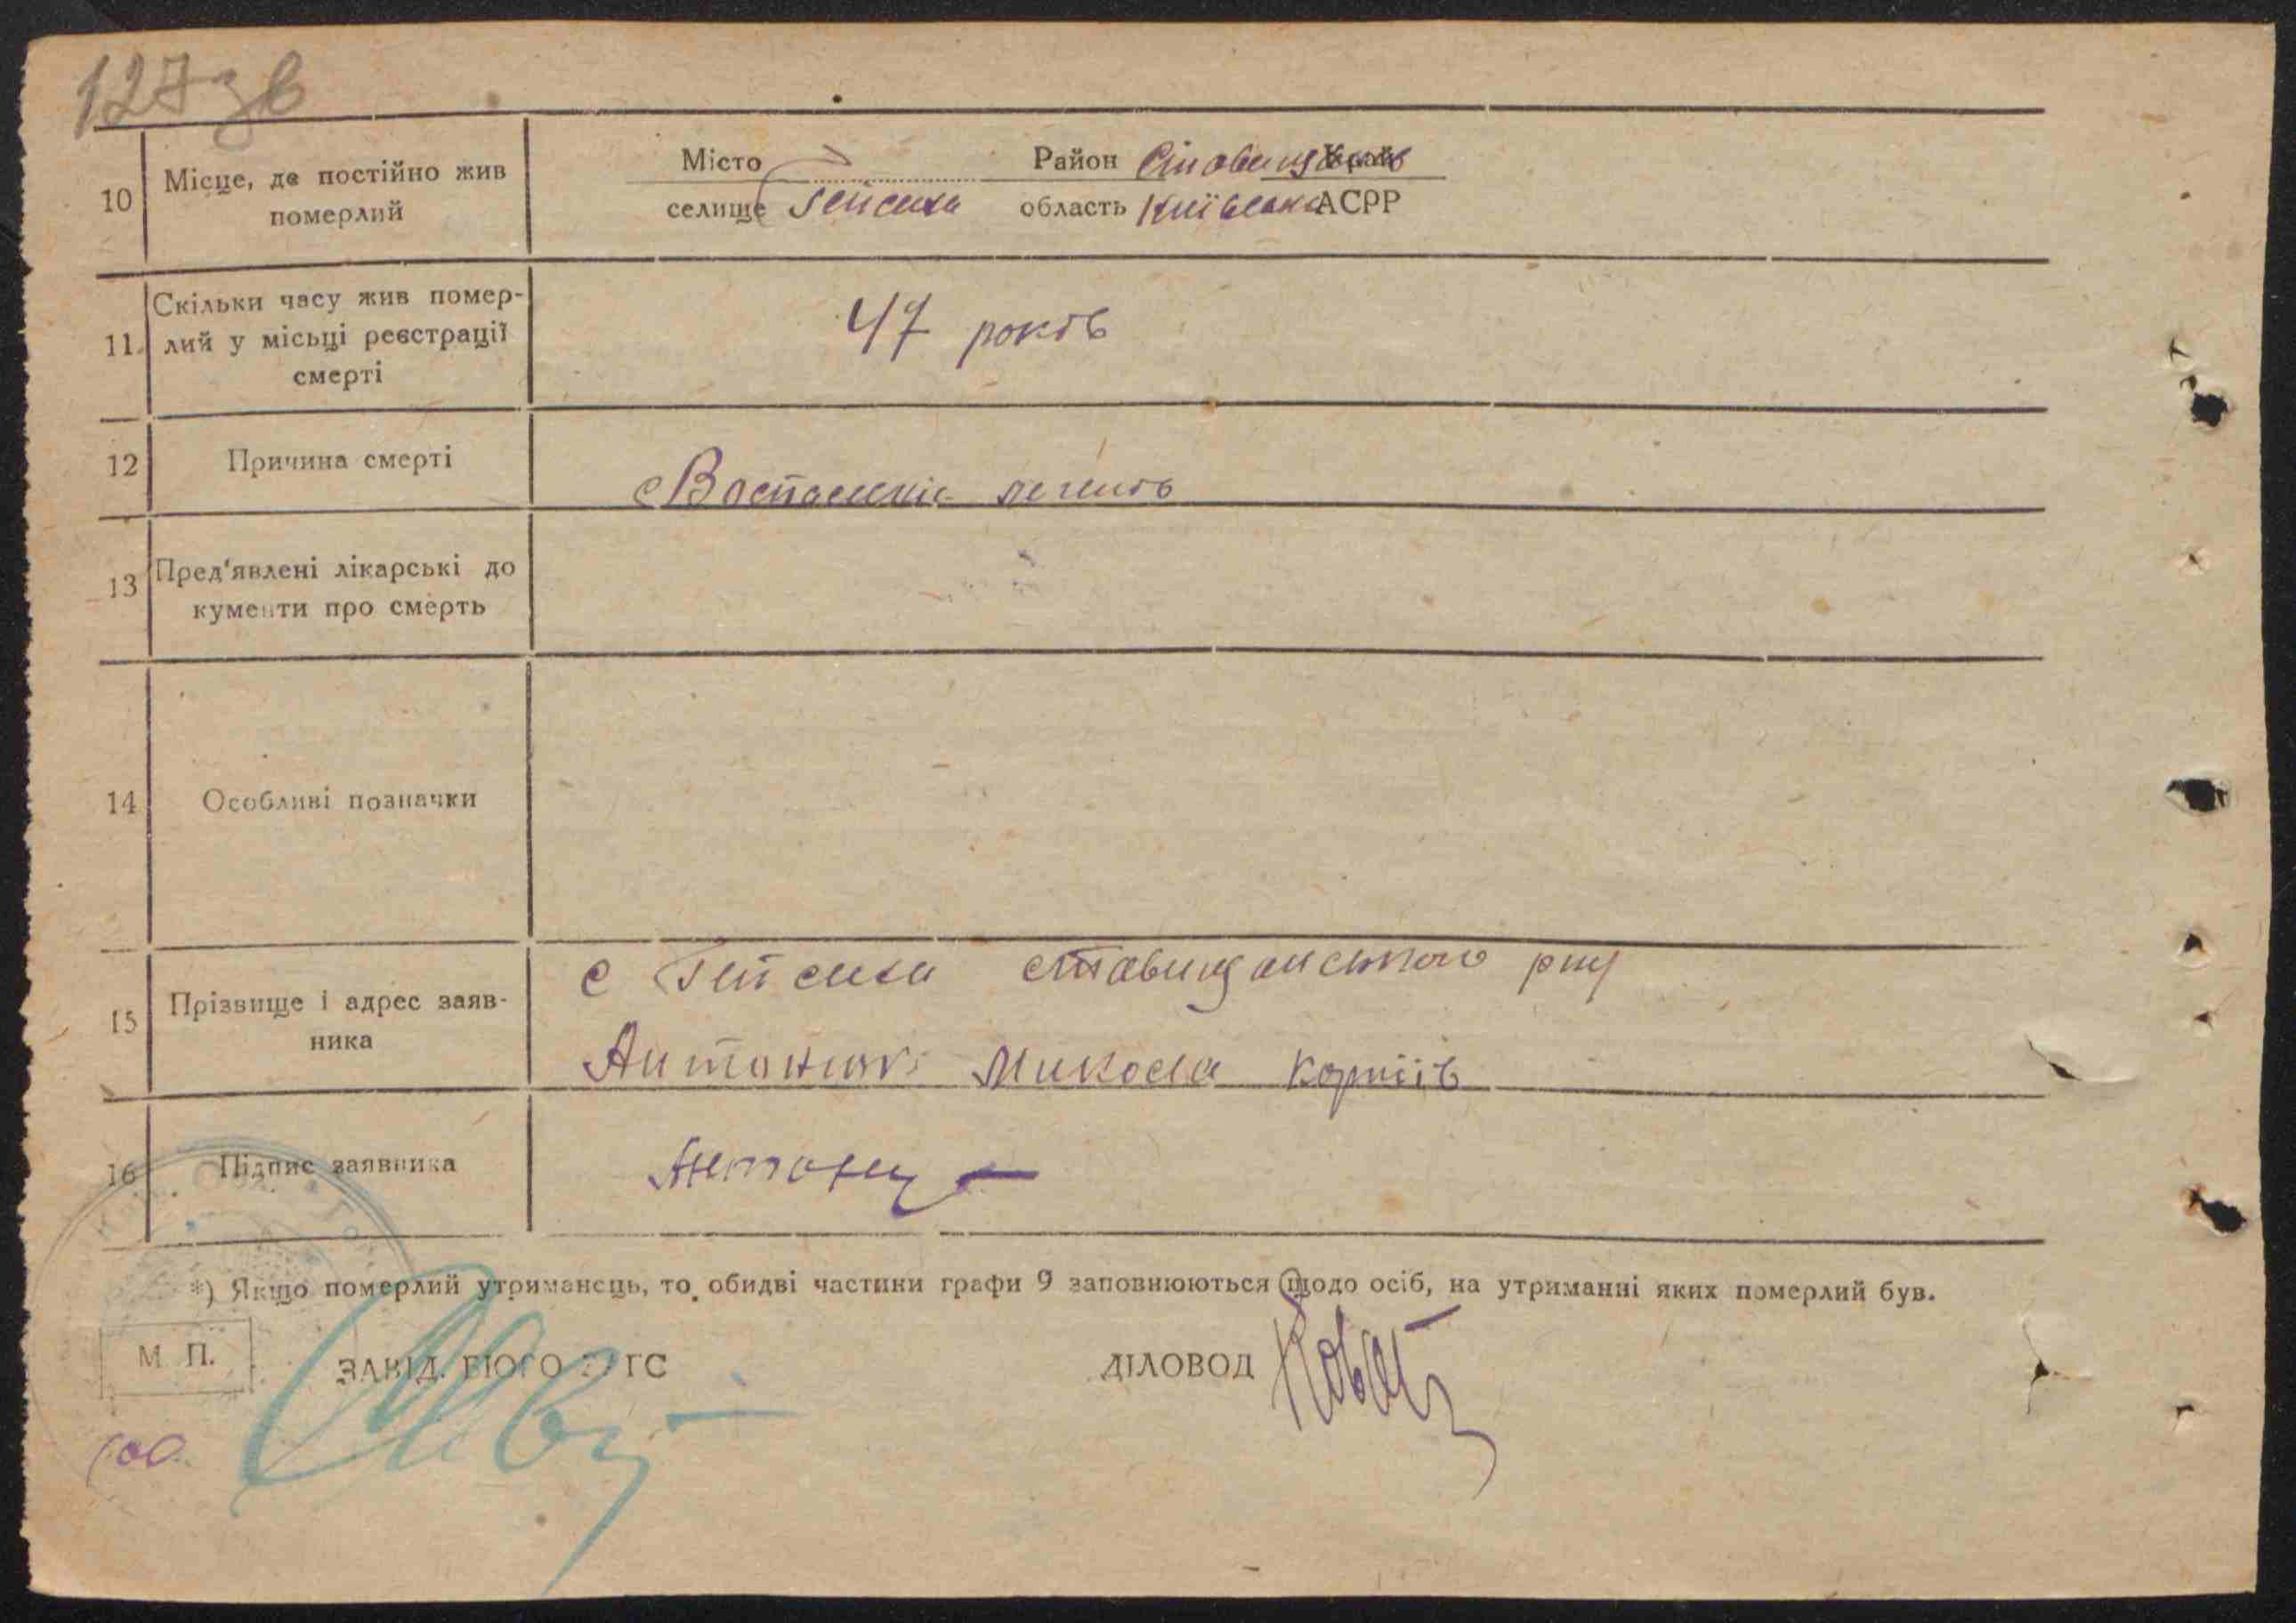 127зв
10 Місце, де постійно жив померлий
Місто Район Ставищанськ Край
селище Гейсиха область Київська АСРР
11 Скільки часу жив помер-
лий у місьці реєстрації
смерті
47 років
12 Причина смерті
Воспаленіє легень
13 Пред'явлені лікарські до
кументи про смерть
14 Особливі позначки
15 Прізвище і адрес заяв-
ника
с Гейсиха Ставищанського р-ну
Антонюк Микола Корніїв
16 Підпис заявника
Антонюк
*) Якщо померлий утриманець, то обидві частини графи 9 заповнюються щодо осіб, на утриманні яких померлий був.
М. П.
ЗАВІД. БЮРО ЗАГС
ДІЛОВОД